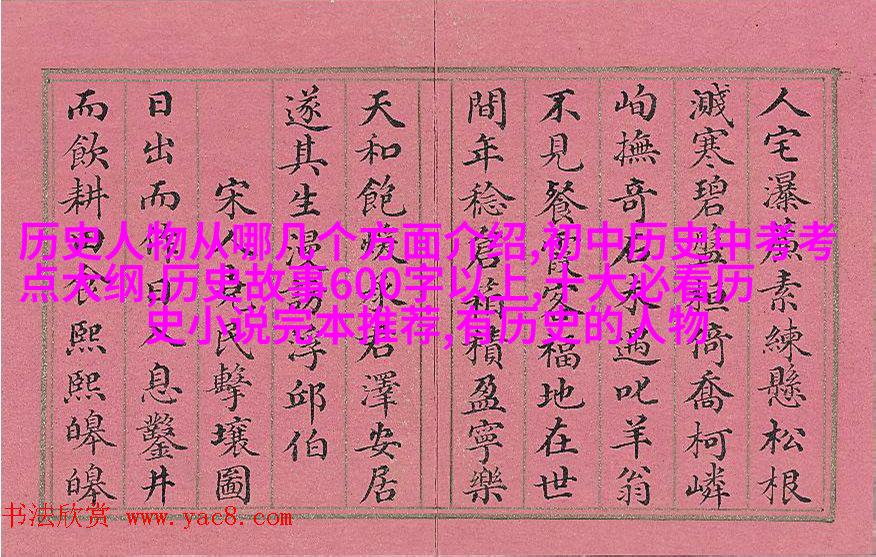 人宅瀑簾素練懸松根
濺寒碧盤桓倚喬柯嶙
峋撫奇石永遇叱羊翁
不見餐霞安福地在世
間年稔倉箱積盈寧樂
天和飽永君澤安居
遂其生漫訪浮邱伯
宋人民擊壤圖
日出而作日入息鑿井
而飲耕田食熙熙皞皞
历史人物从哪几个方面介绍,初中历史中考考
点大纲,历史故事600字以上,十大必看历
史小说完本推荐,有历史的人物
书法欣赏 www.yac8.com